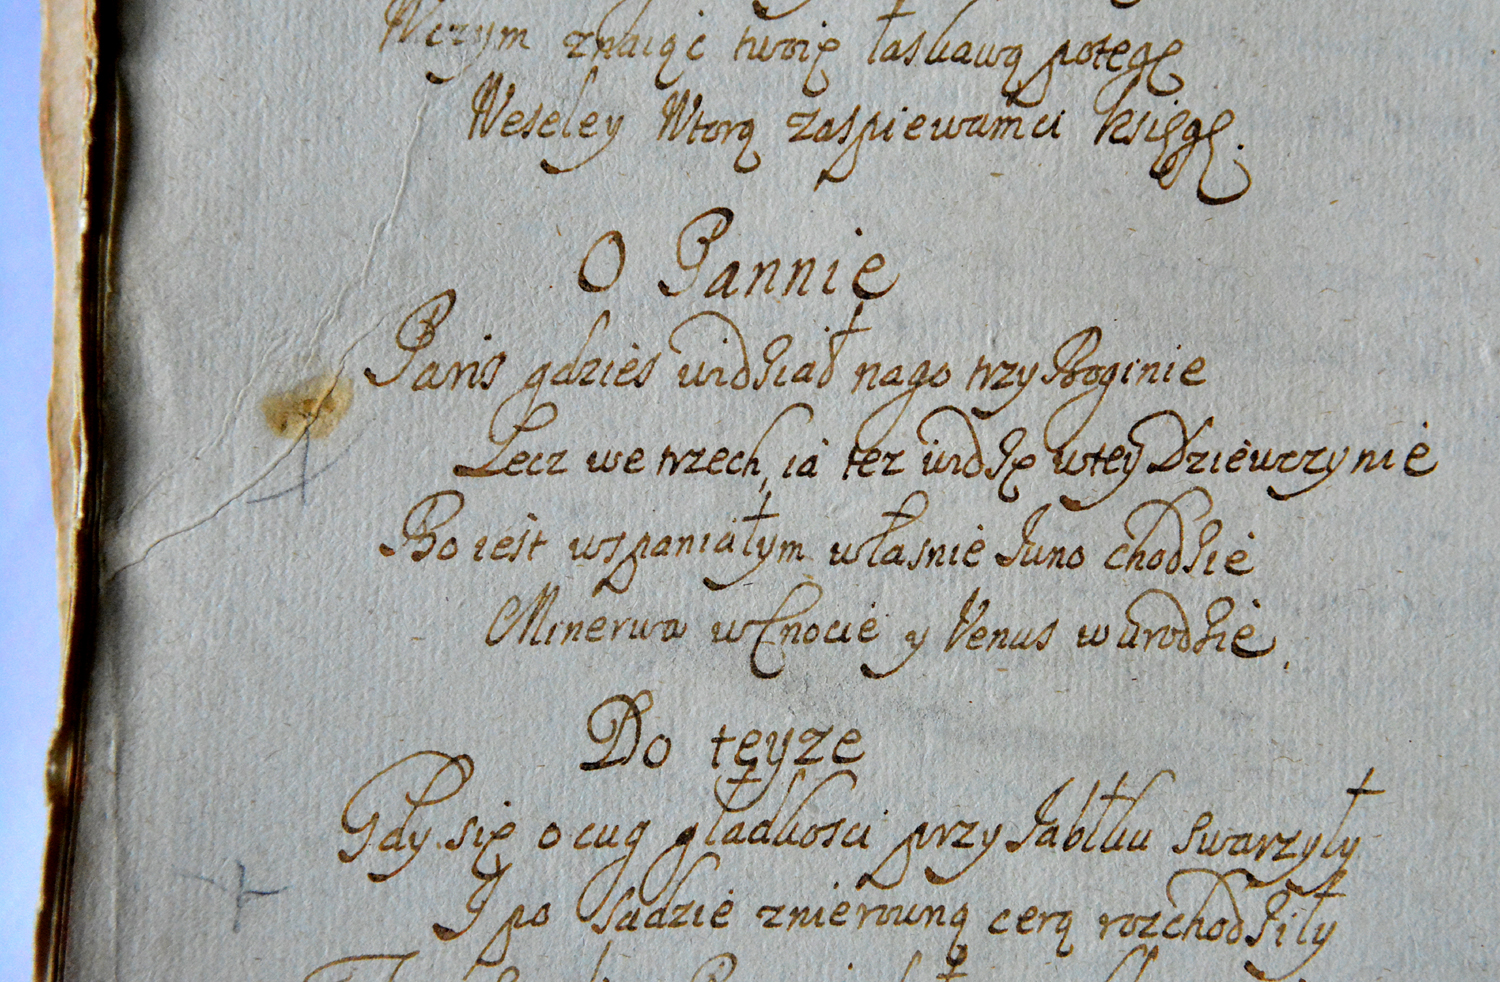 Wczym znaiąc twoię łaskawą potęgę
Weseley Wtorą zaspiewamci księgę.
O Pannię
Parys gdzieś widział nago trzy Boginie
Lecz we trzech, ia tez widzę wtey Dziewczynie
Bo iest wspaniałym własnie Juno chodzie
Minerwa w Cnocie y Venus w urodzie,
Do teyze
Gdy się o cug gładkosci przy Jabłku swarzyły
I po sadzie znierowną cerą rozchodziły